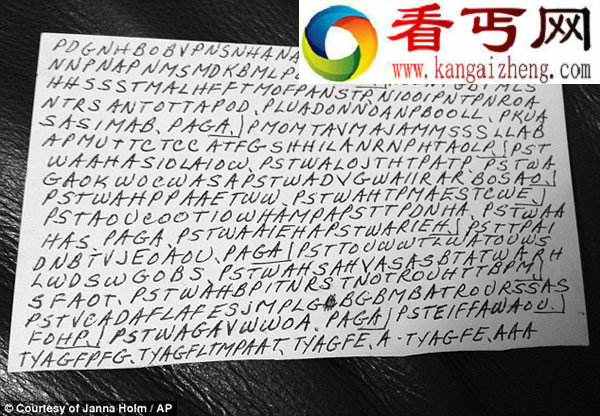 看丐网
www.kangaizheng.com
PDGNHBOBVPNSNHANA
NNPNAPNMSMDKBMLP
HHSSSTMALHFFTMOFPANSTP, NIOOIPNTPNROA
NTRSANTOTTAPOD, PLUADONNDANPBOOLL, PKUA
SASIMAB, PAGA, PMOMTAVMAJAMMSSSLLAB
APMUTTCTCCATFG-SHHILANRNPHTAOLP, PST
WAAHASIOLAIOW, PSTWALOJTHTPATP, PSTWA
GAOKWOCWASAPSTWADVGWAIIRAR, BOSAO,
PSTWAHPPAAETWW, PSTWAHTPMAESTCWE,
PSTAOUCOOTIOWHAMPAPSTTPDNHA, PSTWAA
HAS, PAGA, PSTWAAIEHAPSTWARIEH, PSTTPAI
DNBTVJEOAOU, PAGA, PSTTOUWWTLWATOUWS
LWDSWGOBS, PSTWAHSAHVASASBTATWARH
SFAOT, PSTWAHBPITNRSTNOTROUHTTBPM,
PSTVCADAFLAFESJMPLG BGBMBATROURSSAS
FOHP, PSTWAGAVWWOA, PAGA, PSTEIFFAWAOU,
TYAGFPFG, TYAGFLTMPAAT, TYAGFE, A-TYAGFE, AAA
© Courtesy of Janna Holm / AP